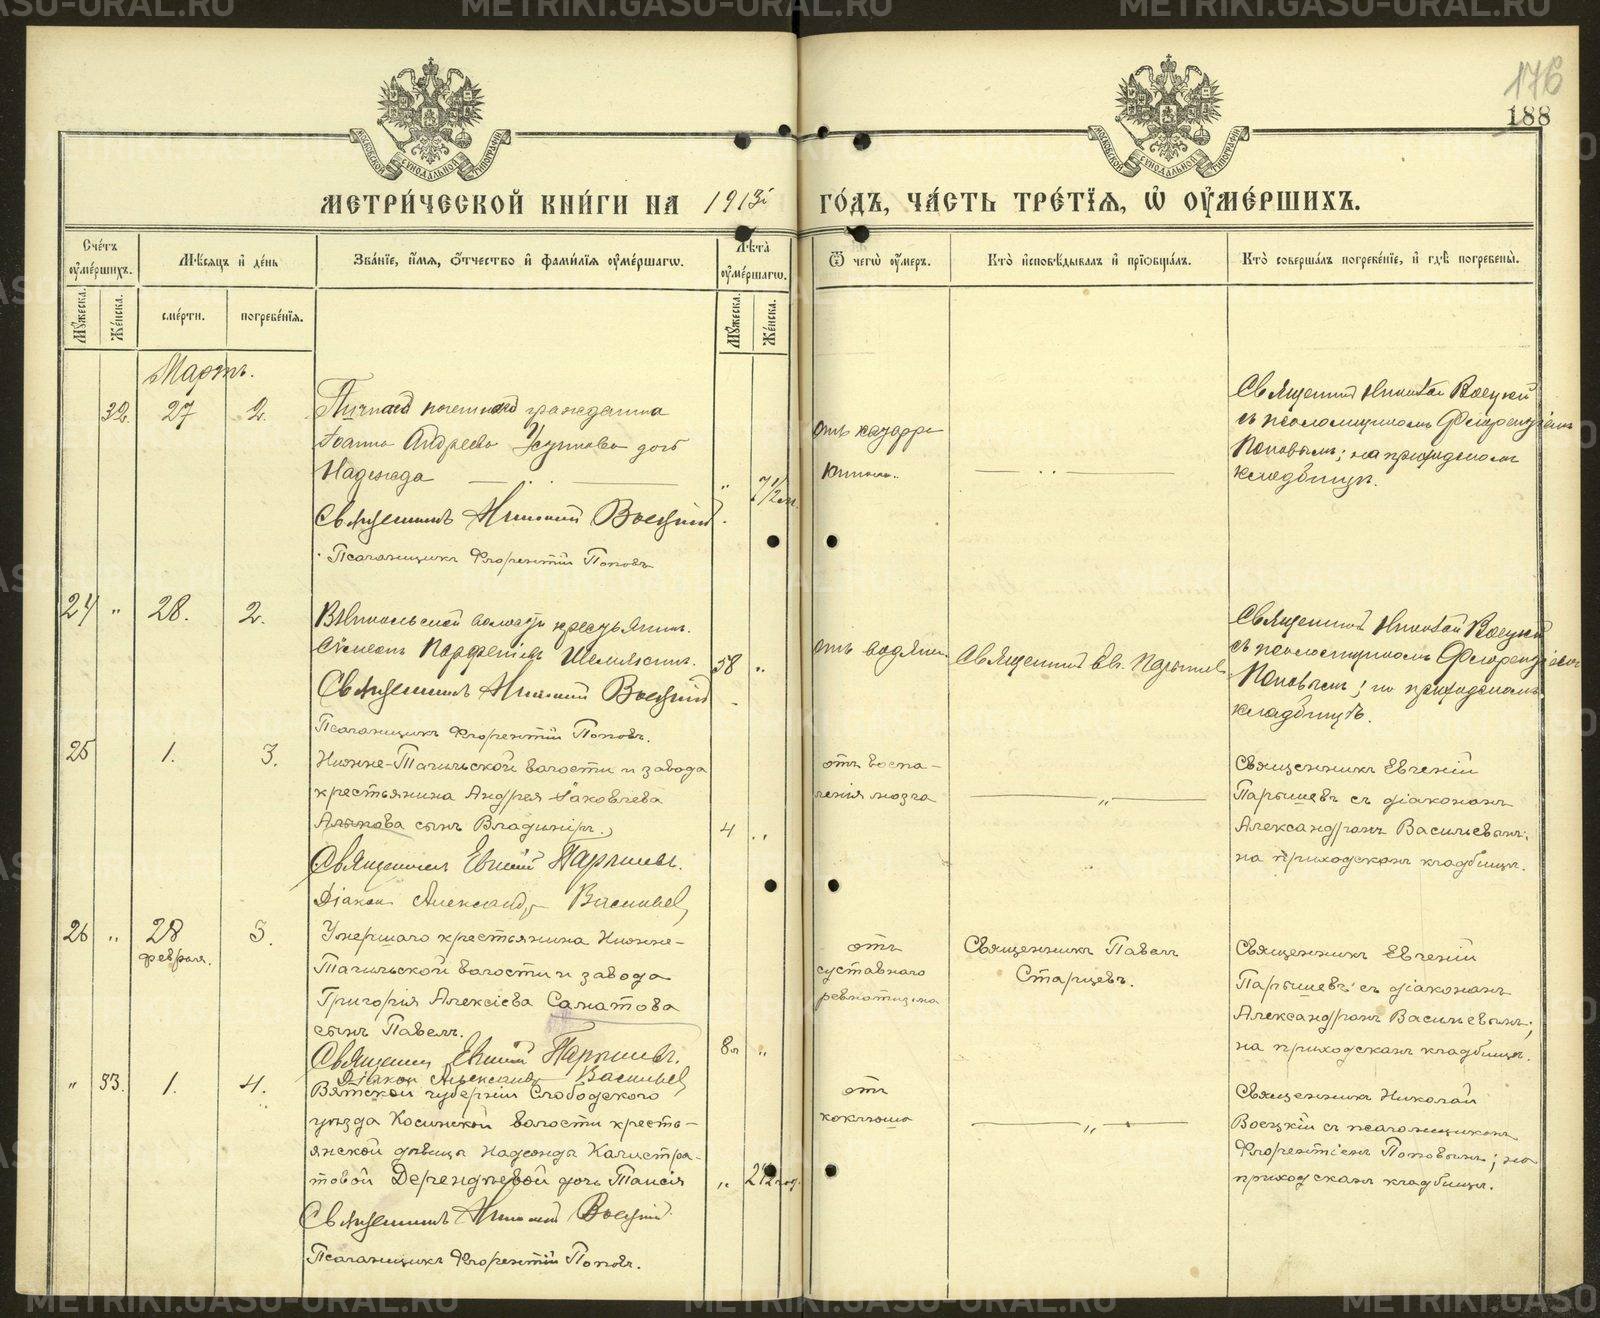 METRIKI.GASU-URAL.RU
176
188
МОСКОВСКОЙ СѴНОДАЛЬНОЙ ТИПОГРАФІИ
МЕТРИ́ЧЕСКОЙ КНИ́ГИ НА 1913й ГО́ДЪ, ЧА́СТЬ ТРЕ́ТІѦ, Ѽ ОУМЕ́РШИХЪ.
Сче́тъ оуме́ршихъ.
Мѣ́сѧцъ и де́нь
Зва́нїе, и́мѧ, о́тчество и фами́лїѧ оуме́ршагѡ.
Лѣ́та оуме́ршагѡ.
Ѿ чегѡ̀ оу́меръ.
Кто̀ исповѣ́дывалъ и прїѡбща́лъ.
Кто̀ соверша́лъ погребе́нїе, и гдѣ̀ погребены̀.
Мꙋ́жеска. Же́нска.
сме́рти. погребе́нїѧ.
Мꙋ́жеска. Же́нска.
Мартъ.
32. 27 2.
Личнаго почетнаго гражданина
Іоанна Андреева Усунова дочь
Надежда
" 7 1/2 м.
Священникъ Николай Воецкій.
Псаломщикъ Флорентій Поповъ
отъ катарра
кишекъ.
Священникъ Николай Воецкій
съ псаломщикомъ Флорентіемъ
Поповымъ; на приходскомъ
кладбищѣ.
24 " 28. 2.
волости крестьянинъ
Сѵмеонъ Парѳеніевъ
58 "
Священникъ Николай Воецкій
Псаломщикъ Флорентій Поповъ.
отъ водянки
Священникъ Ев. Парышевъ
Священникъ Николай Воецкій
съ псаломщикомъ Флорентіемъ
Поповымъ; на приходскомъ
кладбищѣ.
25 1. 3.
Нижне-Тагильской волости и завода
крестьянина Андрея Іаковлева
Алыкова сынъ Владиміръ.
4 "
Священникъ Евгеній Парышевъ.
Діаконъ Александръ Васильевъ
отъ воспа-
ленія мозга
Священникъ Евгеній
Парышевъ съ діакономъ
Александромъ Васильевымъ;
на приходскомъ кладбищѣ.
26 " 28 февраля. 3.
Умершаго крестьянина Нижне-
Тагильской волости и завода
Григорія Алексіева Саматова
сынъ Павелъ.
8л "
Священникъ Евгеній Парышевъ.
Діаконъ Александръ Васильевъ
отъ
суставного
ревматизма
Священникъ Павелъ
Старцевъ.
Священникъ Евгеній
Парышевъ съ діакономъ
Александромъ Васильевымъ;
на приходскомъ кладбищѣ.
" 33. 1. 4.
Вятской губерніи Слободского
уѣзда Косинской волости кресть-
янской дѣвицы Надежды Калистра-
товой Дерендяевой дочь Таисія
" 2 1/2 год.
Священникъ Николай Воецкій.
Псаломщикъ Флорентій Поповъ.
отъ
коклюша
Священникъ Николай
Воецкій съ псаломщикомъ
Флорентіемъ Поповымъ; на
приходскомъ кладбищѣ.